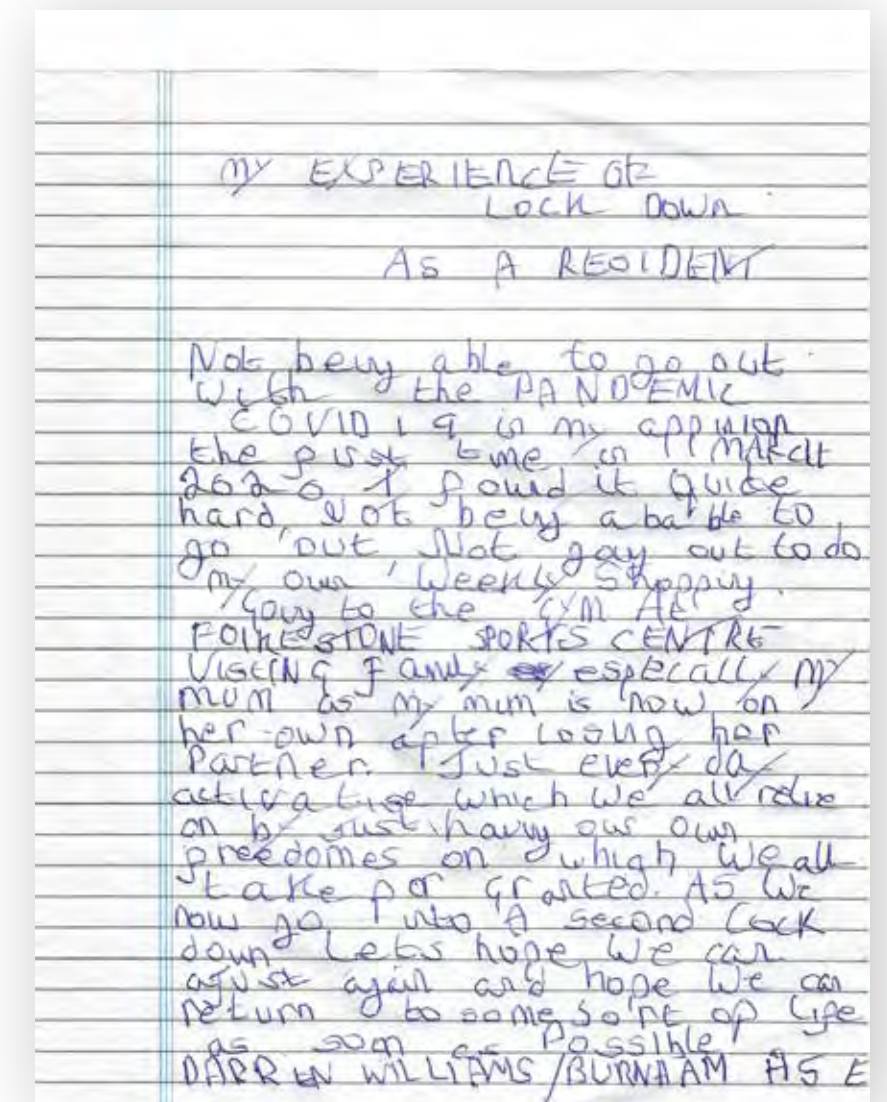 MY EXSPERIENCE OF
LOCK DOWN
AS A RESIDENT
Not being able to go out
with the PANDEMIC
COVID 19 in my appinion
the first time in MARCH
2020 I found it quite
hard. Not being ababble to
go out Not going out to do
my own Weekly Shopping
Going to the GYM At
FOLKESTONE SPORTS CENTRE
VISITING Family especally my
MUM as my mum is now on
her own after loosing her
Partner. Just every day
which we all relie
on by Just having our own
freedomes on which we all
take for Granted. AS We
now go into A second Lock
down Lets hope we can
ajust again and hope we can
return to some sort of life
as soon as Possible
DARREN WILLIAMS / BURNHAM